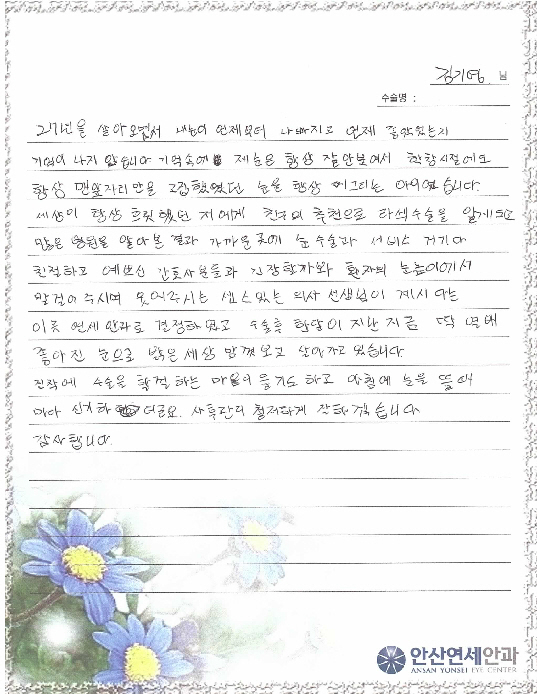 김기영 님
수술명 :
27년을 살아오면서 내눈이 언제부터 나빠지고 언제 좋았었는지
기억이 나지 않습니다 기억속에 제눈은 항상 잘안보여서 학창시절에도
항상 맨앞자리만을 고집했었던 눈을 항상 찌그리는 아이였습니다.
세상이 항상 흐릿했던 저에게 친구의 추천으로 라섹수술을 알게되고
많은 병원을 알아본 결과 가까운곳에 눈수술과 서비스 거기다
친절하고 예쁘신 간호사분들과 긴장할까봐 환자의 눈높이에서
말걸어주시며 웃어주시는 센스있는 의사 선생님이 계시다는
이곳 연세안과로 결정하였고 수술후 한달이 지난 지금 딱 열배
좋아진 눈으로 밝은세상 만끽하고 살아가고 있습니다.
진작에 수술을 할걸 하는 마음이 들기도 하고 아침에 눈을 뜰때
마다 신기하 더군요. 사후관리 철저하게 잘하겠습니다
감사합니다.
안산연세안과
ANSAN YUNSEI EYE CENTER